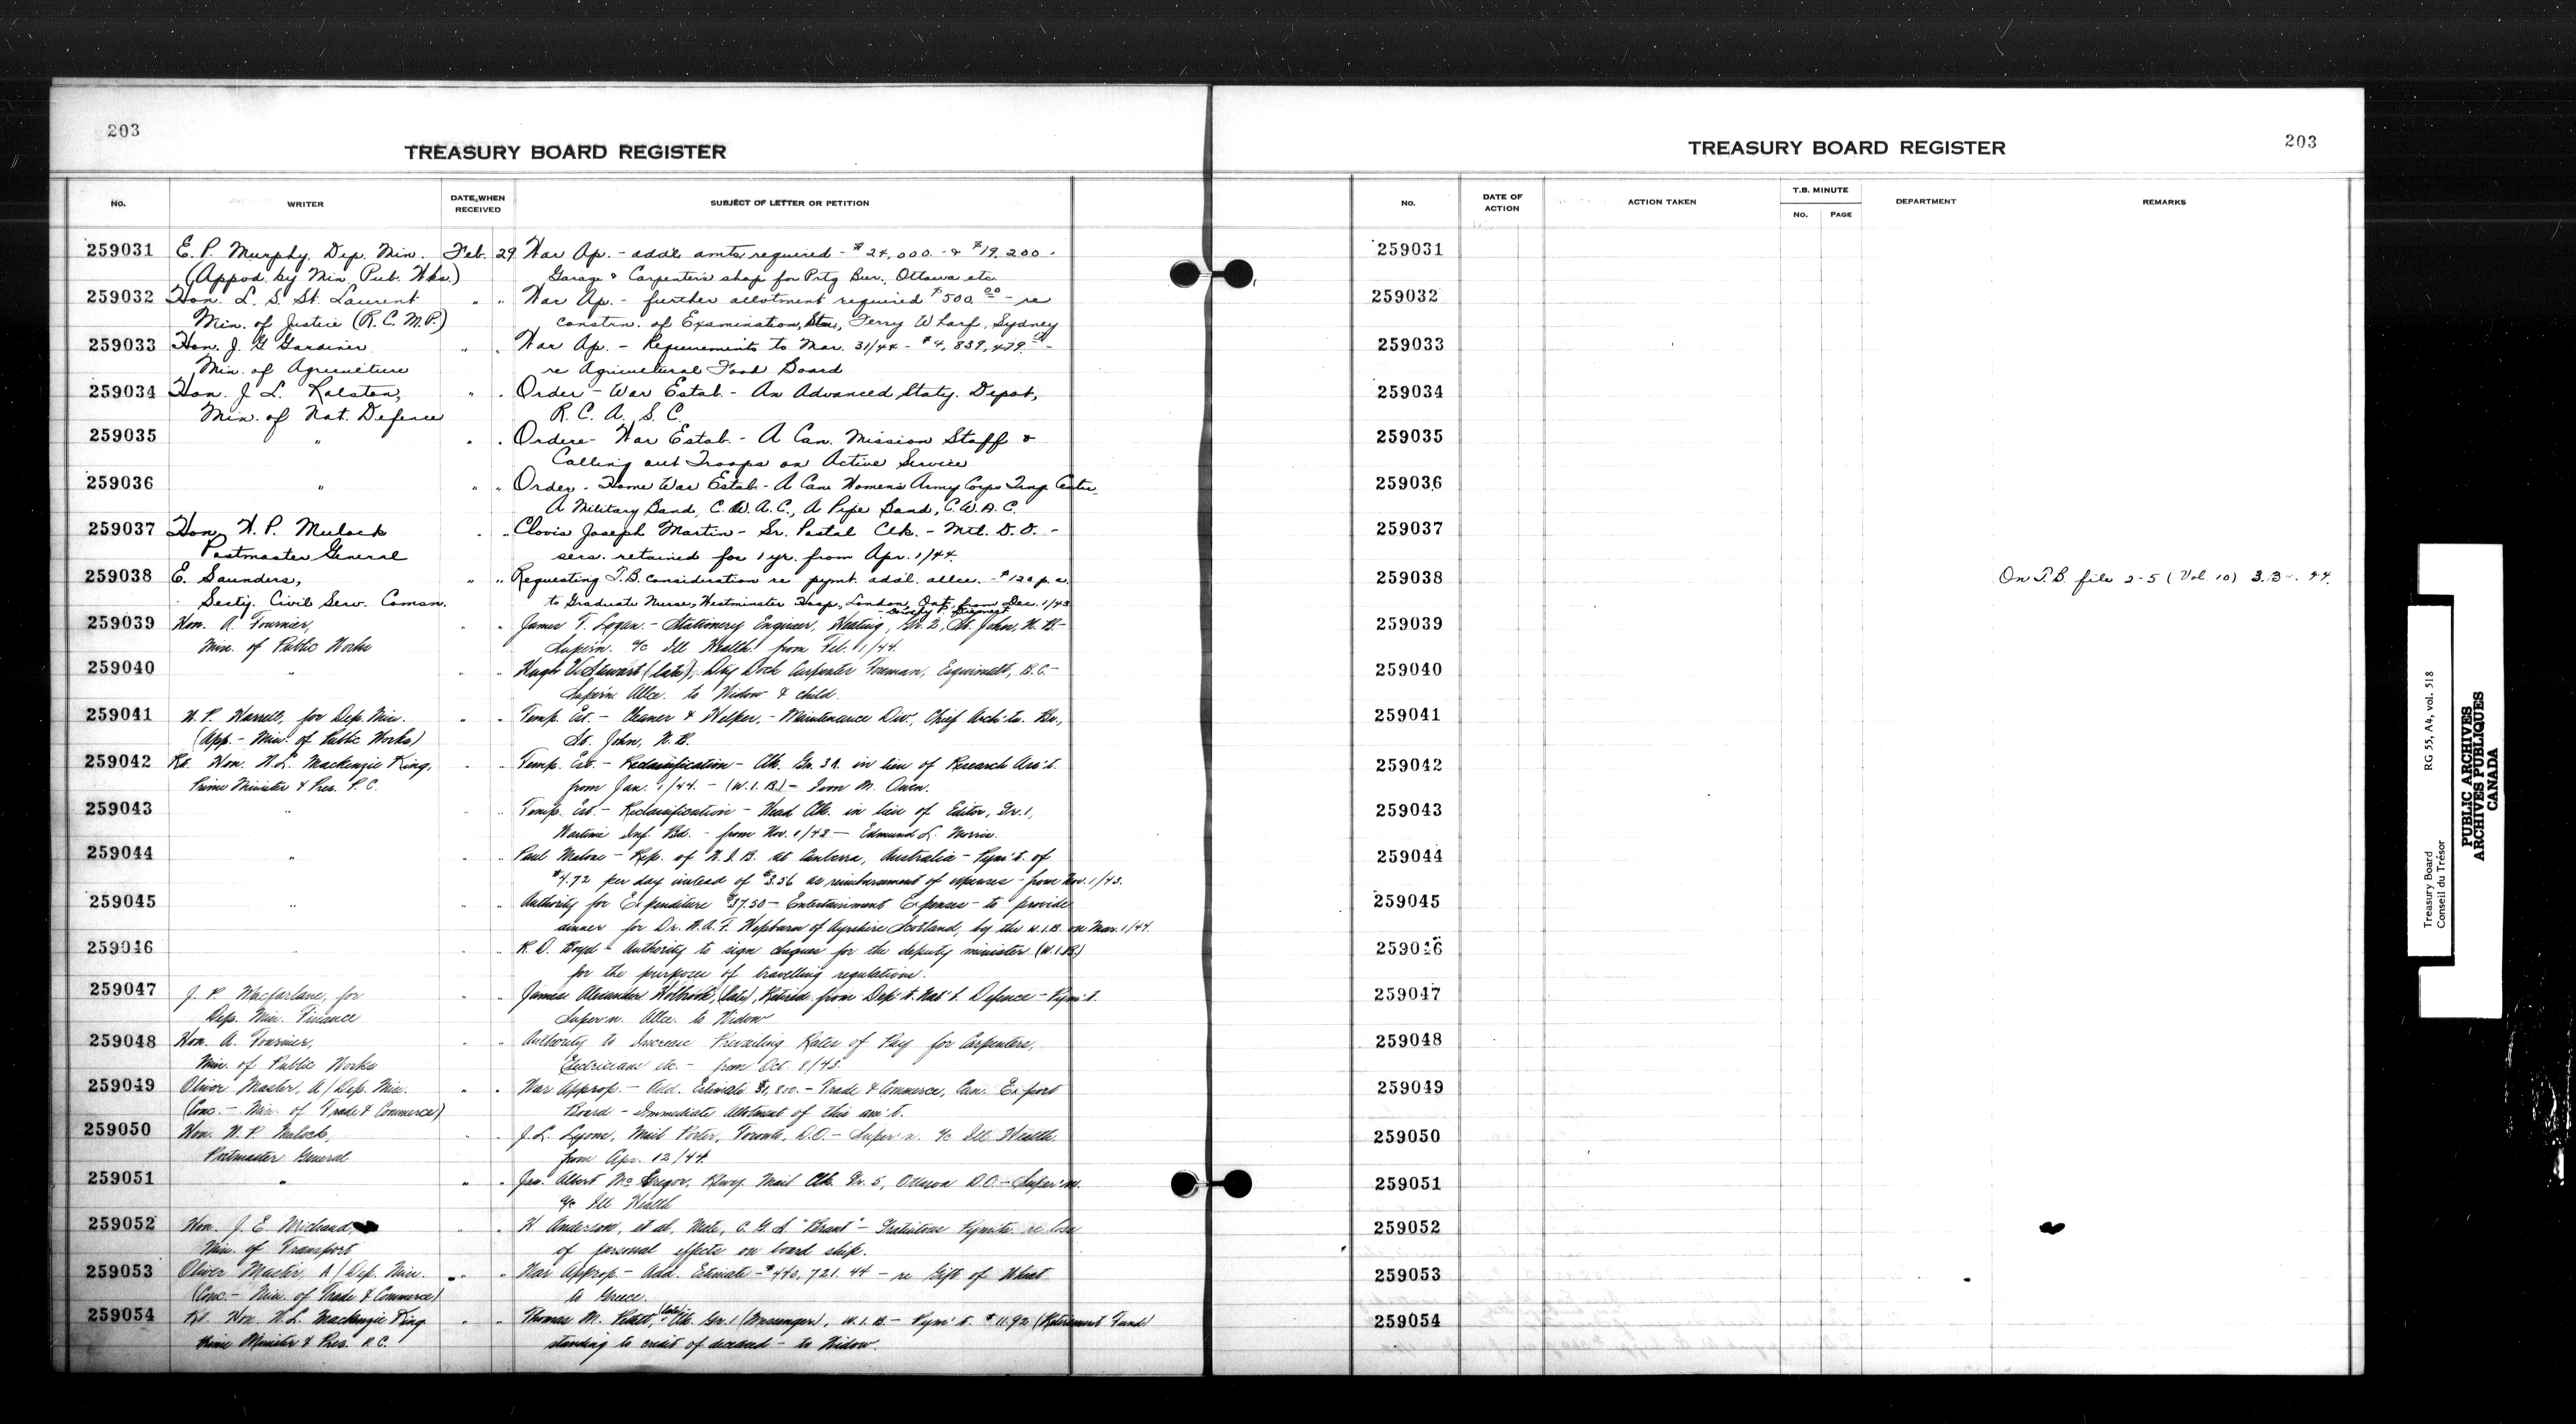 203
TREASURY BOARD REGISTER
NO. WRITER DATE WHEN RECEIVED SUBJECT OF LETTER OR PETITION
259031 E. P. Murphy, Dep. Min. Feb. 29 War Ap. - add'l amts required - $24,000 - & $19,200 -
(Appvd. by Min. Pub. Wks.) Garage & Carpenters shop for Prtg Bur., Ottawa etc.
259032 Hon. L. S. St. Laurent " " War Ap. - further allotment required $500.00 - re
Min. of Justice (R.C.M.P.) constrn. of Examination Ferry Wharf, Sydney
259033 Hon. J. G. Gardiner " " War Ap. - Requirements to Mar. 31/44 - $4,839,479.00 -
Min. of Agriculture re Agricultural Food Board
259034 Hon. J. L. Ralston, " " Order - War Estab. - An Advanced Staty. Depot,
Min. of Nat. Defence R. C. A. S. C.
259035 " " " Orders - War Estab. - A Can. Mission Staff &
Calling out Troops on Active Service
259036 " " " Order - Home War Estab. - A Can. Women's Army Corps Trng Centre,
A Military Band, C.W.A.C., A Pipe Band, C.W.A.C.
259037 Hon. W. P. Mulock " " Clovis Joseph Martin - Sr. Postal Clk. - Mtl. D.O. -
Postmaster General sers. retained for 1 yr. from Apr. 1/44.
259038 E. Saunders, " " Requesting T.B. consideration re pymt. add'l. allce. - $120 p.a.
Secty. Civil Serv. Comsn. to Graduate Nurse, Westminster Hosp., London, Ont. from Dec. 1/43
259039 Hon. A. Fournier, " " James T. Logan - Stationery Engineer, Heating, Gr. 2, St. John, N.B. -
Min. of Public Works Super'n. a/c Ill Health from Feb. 1/44.
259040 " " " Hugh V. Stewart (late), Dry Dock Carpenter Foreman, Esquimalt, B.C. -
Super'n Allce. to Widow & child.
259041 W. P. Harrell, for Dep. Min. " " Temp. Est. - Cleaner & Helper, - Maintenance Div., Chief Archt's. Br.,
(App. - Min. of Public Works) St. John, N.B.
259042 Rt. Hon. W.L. Mackenzie King, " " Temp. Est. - Reclassification - Clk. Gr. 3A. in lieu of Research Ass't.
Prime Minister & Pres. P.C. from Jan. 1/44. - (W.I.B.) - Ivon M. Owen.
259043 " " " Temp. Est. - Reclassification - Head Clk. in lieu of Editor, Gr. 1,
Wartime Inf. Bd. - from Nov. 1/43 - Edmund L. Morris.
259044 " " " Paul Malone - Rep. of W.I.B. at Canberra, Australia - Pym't. of
$4.72 per day instead of $3.56 as reimbursement of expenses - from Nov. 1/43.
259045 " " " Authority for Expenditure $37.50 - Entertainment Expenses - to provide
dinner for Dr. W.A.F. Hepburn of Ayrshire Scotland, by the W.I.B. on Mar. 1/44.
259046 " " " R. D. Boyd - Authority to sign cheques for the deputy minister (W.I.B.)
for the purposes of travelling regulations.
259047 J. P. Macfarlane, for " " James Alexander Holbrook, (late), Retired from Dep't. Nat'l. Defence - Pym't.
Dep. Min. Finance Super'n. Allce. to Widow
259048 Hon. A. Fournier, " " Authority to Increase Prevailing Rates of Pay for Carpenters,
Min. of Public Works Electricians etc. - from Oct. 8/43.
259049 Oliver Master, A/Dep. Min. " " War Approp. - Add. Estimate $1,800. - Trade & Commerce, Can. Export
(Conc. - Min. of Trade & Commerce) Board - Immediate Allotment of this am't.
259050 Hon. W. P. Mulock, " " J. L. Lyons, Mail Porter, Toronto, D.O. - Super'n. a/c Ill Health.
Postmaster General from Apr. 12/44.
259051 " " " Jas. Albert McGregor, Rlwy. Mail Clk. Gr. 5, Ottawa D.O. - Super'n.
a/c Ill Health
259052 Hon. J. E. Michaud, " " H. Anderson, et al, Mate, C.G.S. "Brant" - Gratuitous Pym'ts. re loss
Min. of Transport of personal effects on board ship.
259053 Oliver Master, A/Dep. Min. " " War Approp. - Add. Estimate - $440,721.44 - re Gift of Wheat
(Conc. - Min. of Trade & Commerce) to Greece.
259054 Rt. Hon. W.L. Mackenzie King " " Thomas M. (late) Clk. Gr. 1 (Messenger), W.I.B. - Pym't. $11.92 (Retirement Fund)
Prime Minister & Pres. P.C. standing to credit of deceased - to Widow.
TREASURY BOARD REGISTER
203
NO. DATE OF ACTION ACTION TAKEN T.B. MINUTE NO. PAGE DEPARTMENT REMARKS
259031
259032
259033
259034
259035
259036
259037
259038 On T.B. file 2-5 (Vol. 10) 44.
259039
259040
259041
259042
259043
259044
259045
259046
259047
259048
259049
259050
259051
259052
259053
259054
Treasury Board RG 55, A4, vol. 518
Conseil du Trésor
PUBLIC ARCHIVES
ARCHIVES PUBLIQUES
CANADA